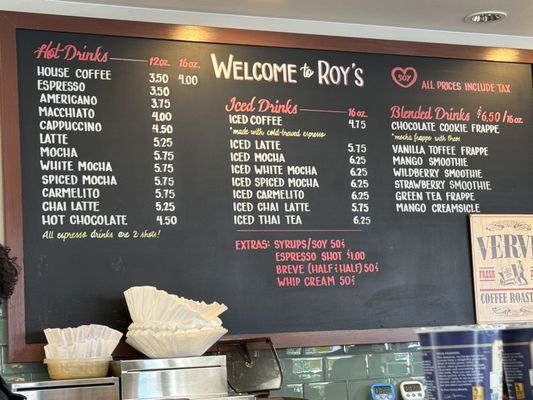 Welcome to Roy's
Hot Drinks 12oz. 16oz.
House Coffee 3.50 4.00
Espresso 3.50
Americano 3.75
Macchiato 4.00
Cappuccino 4.50
Latte 5.25
Mocha 5.75
White Mocha 5.75
Spiced Mocha 5.75
Carmelito 5.75
Chai Latte 5.25
Hot Chocolate 4.50
All espresso drinks are 2 shots!
Iced Drinks 16oz.
Iced Coffee 4.75
*made with cold-brewed espresso
Iced Latte 5.75
Iced Mocha 6.25
Iced White Mocha 6.25
Iced Spiced Mocha 6.25
Iced Carmelito 6.25
Iced Chai Latte 5.75
Iced Thai Tea 6.25
Extras: Syrups/Soy 50¢
Espresso Shot $1.00
Breve (Half & Half) 50¢
Whip Cream 50¢
Soy
All Prices Include Tax
Blended Drinks $6.50/16oz.
Chocolate Cookie Frappe
*mocha frappe with Oreos
Vanilla Toffee Frappe
Mango Smoothie
Wildberry Smoothie
Strawberry Smoothie
Green Tea Frappe
Mango Creamsicle
VERVE
FRESH
COFFEE ROAST